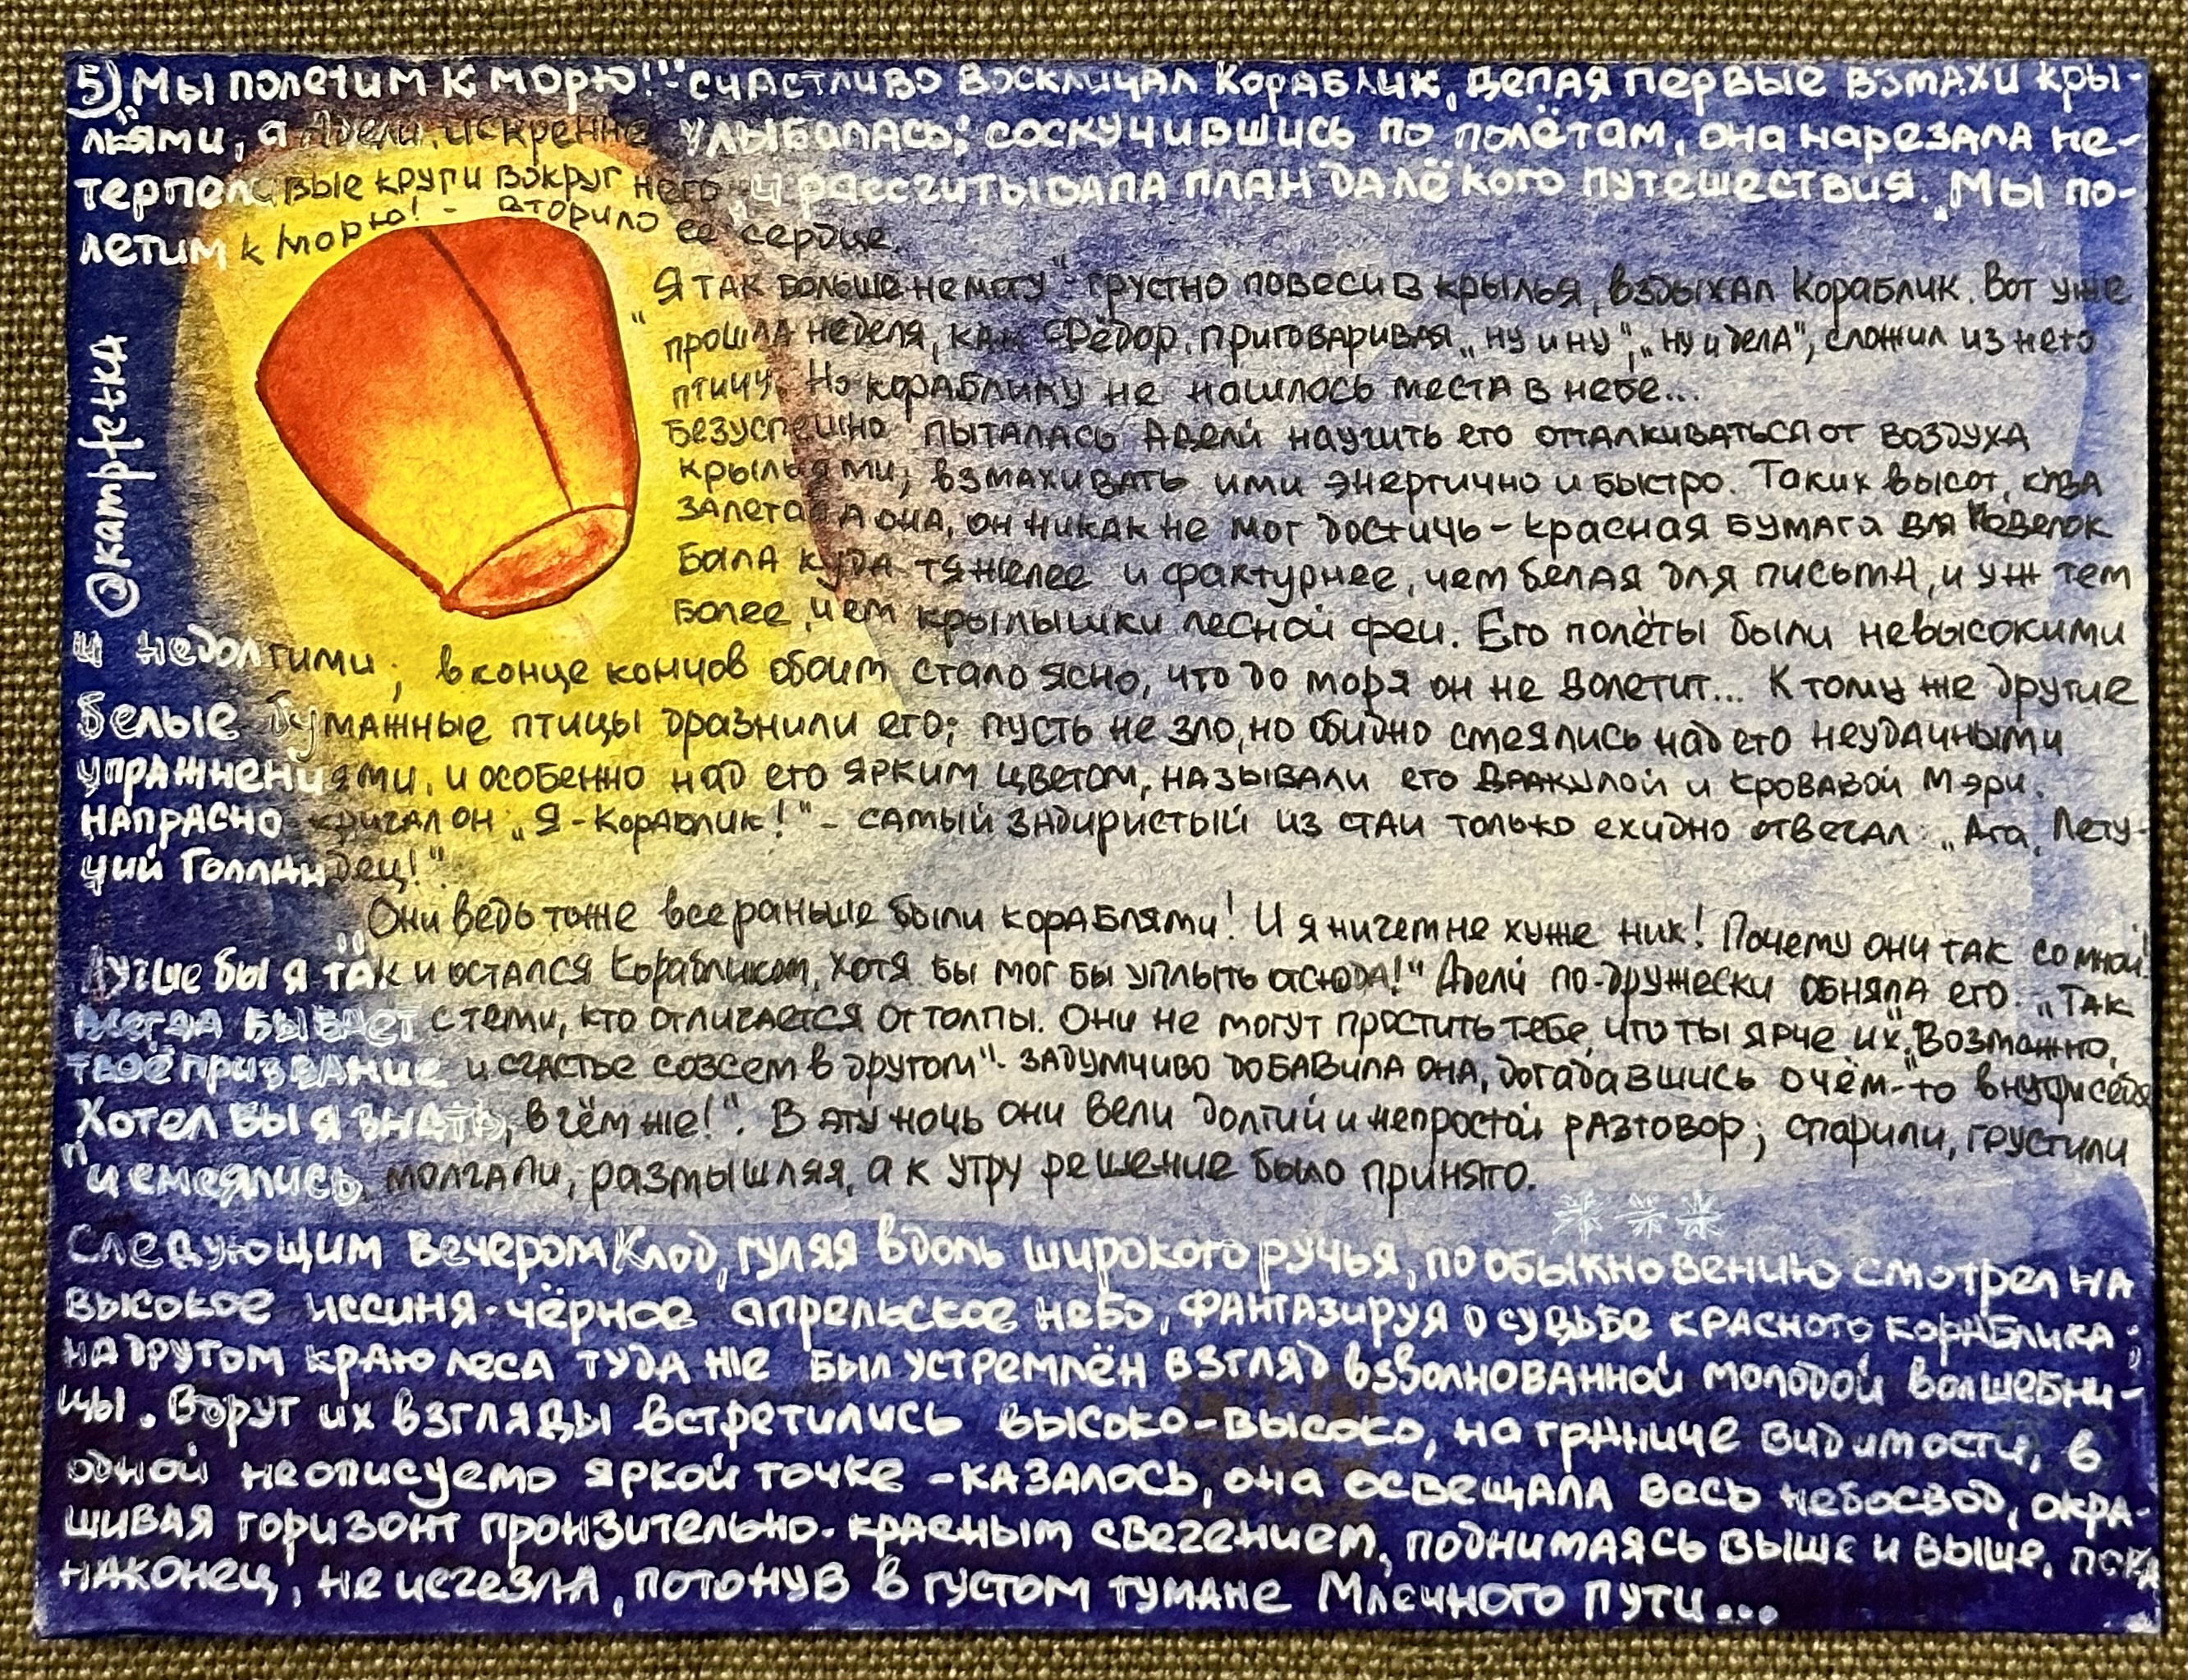 5) „Мы полетим к морю!" - счастливо восклицал Кораблик, делая первые взмахи кры-
льями, а Адели искренне улыбалась; соскучившись по полётам, она нарезала не-
терпеливые круги вокруг него и рассчитывала план далёкого путешествия. „Мы по-
летим к морю! - вторило её сердце.
"Я так больше не могу" - грустно повесив крылья, вздыхал Кораблик. Вот уже
прошла неделя, как Фёдор, приговаривая „ну и ну", „ну и дела", сложил из него
птицу. Но кораблику не нашлось места в небе...
Безуспешно пыталась Адели научить его отталкиваться от воздуха
крыльями, взмахивать ими энергично и быстро. Таких высот, куда
залетала она, он никак не мог достичь - красная бумага для поделок
была куда тяжелее и фактурнее, чем белая для письма, и уж тем
более, чем крылышки лесной феи. Его полёты были невысокими
и недолгими; в конце концов обоим стало ясно, что до моря он не долетит... К тому же другие
белые бумажные птицы дразнили его; пусть не зло, но обидно смеялись над его неудачными
упражнениями, и особенно над его ярким цветом, называли его Дракулой и Кровавой Мэри.
Напрасно кричал он „Я - Кораблик!" - самый задиристый из стаи только ехидно отвечал: „Ага, Лету-
чий Голландец!".
„Они ведь тоже все раньше были кораблями! И я ничем не хуже них! Почему они так со мной!
Лучше бы я так и остался Корабликом, хотя бы мог бы уплыть отсюда!" Адели по-дружески обняла его. „Так
всегда бывает с теми, кто отличается от толпы. Они не могут простить тебе, что ты ярче их. Возможно,
твоё призвание и счастье совсем в другом" - задумчиво добавила она, догадавшись о чём-то внутри себя
„Хотел бы я знать, в чём же!". В эту ночь они вели долгий и непростой разговор; спорили, грустили
и смеялись, молчали, размышляя, а к утру решение было принято.
***
Следующим вечером Клод, гуляя вдоль широкого ручья, по обыкновению смотрел на
высокое иссиня-чёрное апрельское небо, фантазируя о судьбе красного кораблика;
на другом краю леса туда же был устремлён взгляд взволнованной молодой волшебни-
цы. Вдруг их взгляды встретились высоко-высоко, на границе видимости, в
одной неописуемо яркой точке - казалось, она освещала весь небосвод, окра-
шивая горизонт пронзительно-красным свечением, поднимаясь выше и выше, пока
наконец, не исчезла, потонув в густом тумане Млечного пути...
@kampfetka